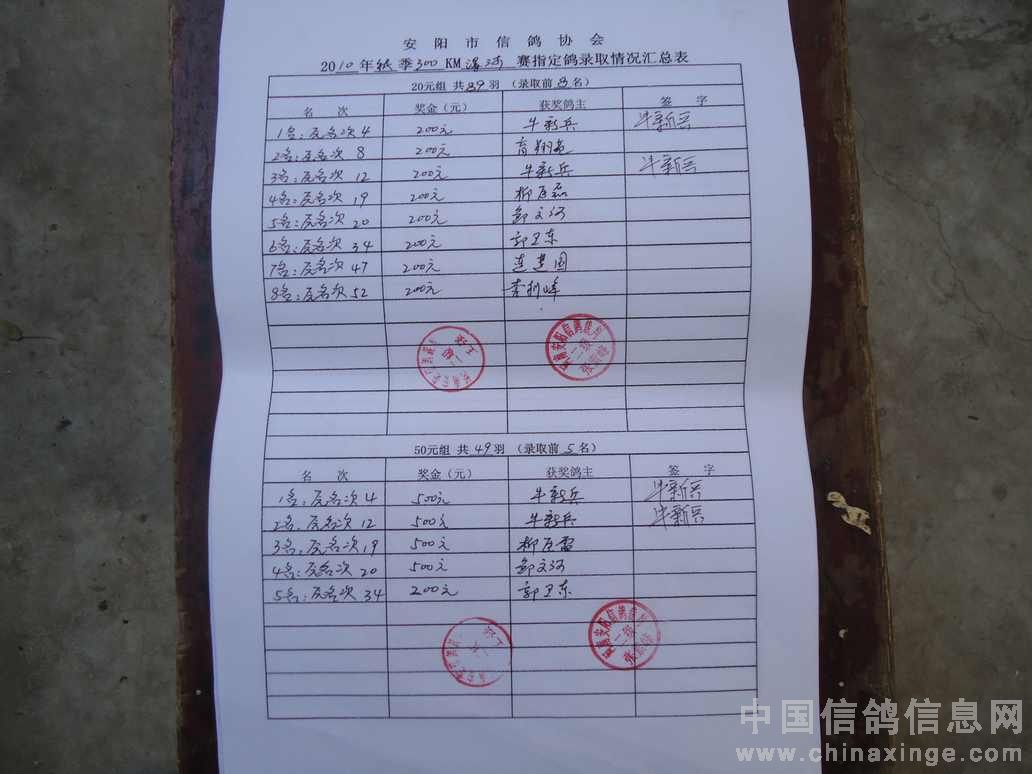 安阳市信鸽协会
2010年秋季300KM漯河赛指定鸽录取情况汇总表
20元组 共89羽 (录取前8名)
名 次 奖金(元) 获奖鸽主 签 字
1名:反名次 4 200元 牛新兵 牛新兵
2名:反名次 8 200元
3名:反名次 12 200元 牛新兵 牛新兵
4名:反名次 19 200元
5名:反名次 20 200元 郜文河
6名:反名次 34 200元 郭卫东
7名:反名次 47 200元 连建国
8名:反名次 52 200元 李利峰
50元组 共49羽 (录取前5名)
名 次 奖金(元) 获奖鸽主 签 字
1名:反名次 4 500元 牛新兵 牛新兵
2名:反名次 12 500元 牛新兵 牛新兵
3名:反名次 19 500元
4名:反名次 20 500元 郜文河
5名:反名次 34 200元 郭卫东
中国信鸽信息网
www.chinaxinge.com